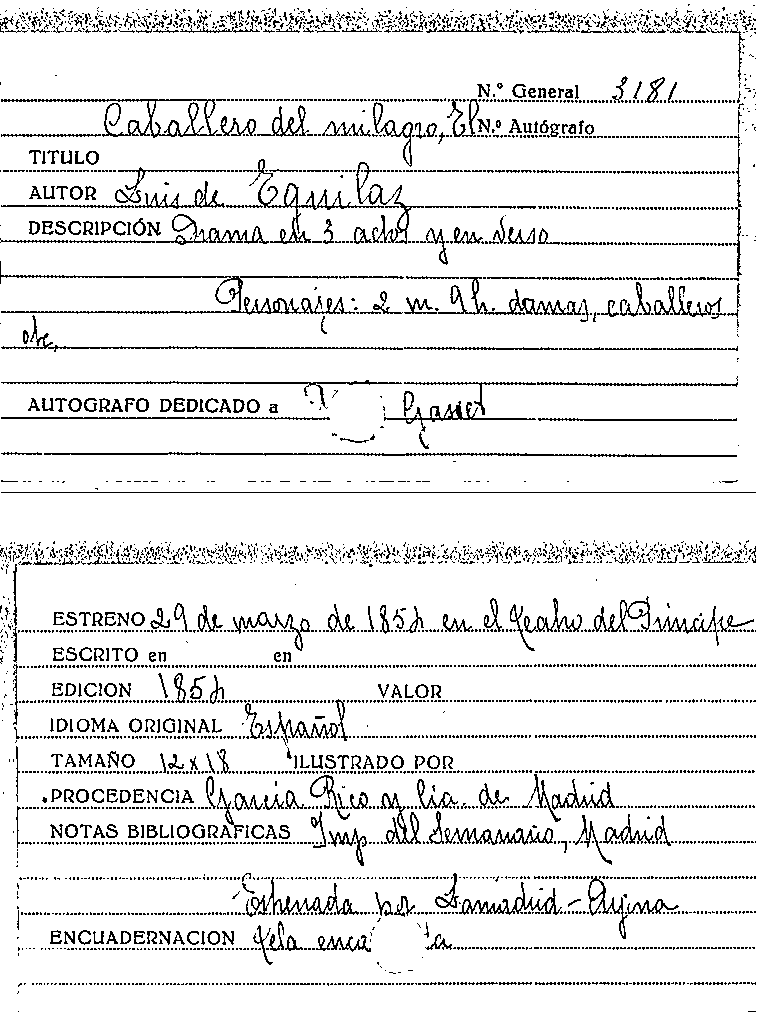 N.º General 3181
Caballero del milagro, El N.º Autógrafo
TITULO
AUTOR Luis de Eguilaz
DESCRIPCIÓN Drama en 3 actos y en verso
Personajes: 2 m. 9 h. damas, caballeros
etc,
AUTOGRAFO DEDICADO a Gasset
ESTRENO 29 de marzo de 1854 en el teatro del Principe
ESCRITO en en
EDICION 1854 VALOR
IDIOMA ORIGINAL Español
TAMAÑO 12 x 18 ILUSTRADO POR
PROCEDENCIA García Rico y Cia. de Madrid
NOTAS BIBLIOGRAFICAS Imp del Semanario, Madrid
Estrenada por Lamadrid - Arjona
ENCUADERNACION tela